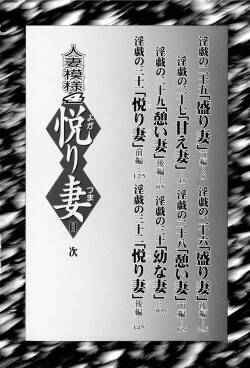 淫戯の二十五「盛り妻」前編
淫戯の二十六「盛り妻」後編
淫戯の二十七「甘え妻」
淫戯の二十八「憩い妻」前編
淫戯の二十九「憩い妻」後編 85
淫戯の三十「幼な妻」 105
淫戯の三十一「悦り妻」前編 125
淫戯の三十二「悦り妻」後編 145
人妻模様
悦り妻
よが
つま
目次